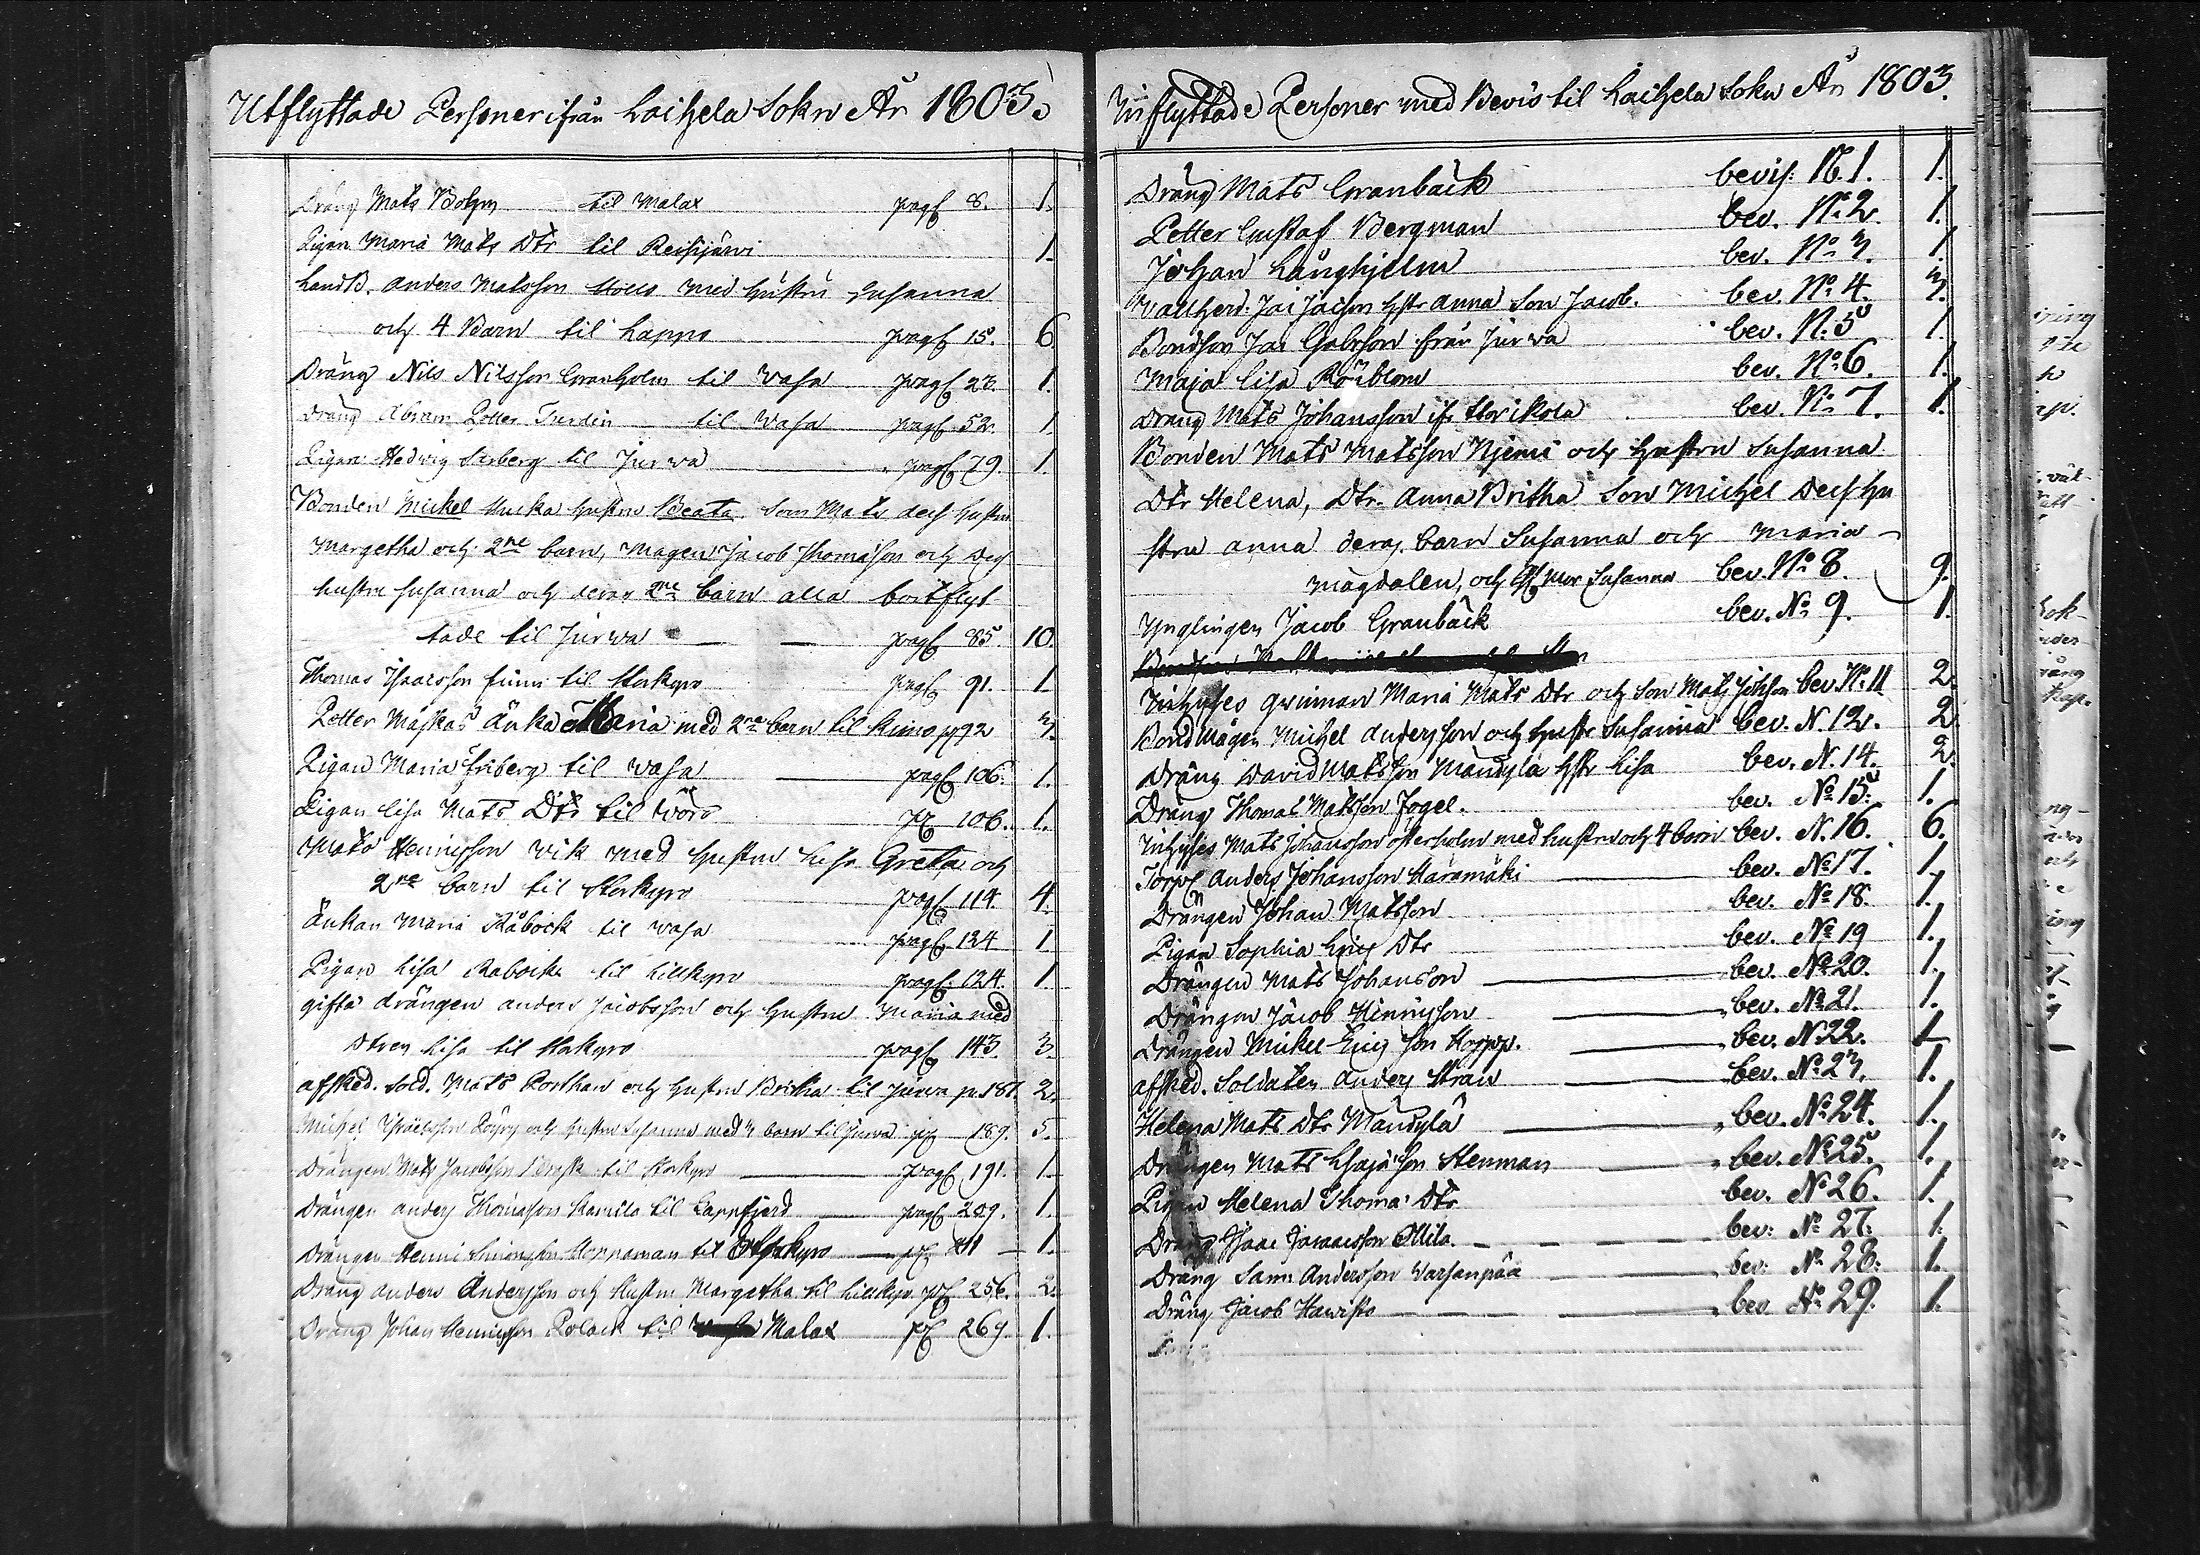 Utflyttade Personer ifrån Laihela Sokn År 1803.
Dräng Mats Bohm til Malax pag 8. 1.
Pigan Maria Mats Dtr til Reisijärvi 1.
LandB. Anders Matsson med Hustru Susanna
och 4 Barn til Lappo pag 15. 6
Dräng Nils Nilsson Granholm til Wasa pag 22. 1.
Dräng Abram Petter til Wasa pag 52. 1.
Pigan Hedvig til Jurwa pag 79. 1
Bonden Mickel Hustru Beata. Son Mats dess hustru
Margetha och 2ne barn, Magen Jacob Thomasson och Dess
hustru Susanna och deras 2ne barn alla bortflyt-
tade til Jurwa — — pag 85. 10.
Thomas Isaacsson til Storkyro pag 91. 1.
Petter Maskas Änka Maria med 2ne barn til Kimo pg 92 3.
Pigan Maria Friberg til Wasa pag 106. 1.
Pigan Lisa Mats Dtr til Wörå pg 106. 1.
Mats Henricsson Vik med Hustru Lisa Greta och
2ne barn til Storkyro pag 114 4.
Änkan Maria Råbock til Wasa pag 124 1
Pigan Lisa Rabock til Lillkyro pag 124. 1
gifta drängen Anders Jacobsson och Hustru Maria med
Dtren Lisa til Storkyro pag 143. 3.
afsked. Sold. Mats Korthan och Hustru Britha til Jurva p. 187. 2.
Michel och Hustru Susanna med 3 barn til Jurva pg 189. 5.
Drängen Mats Jacobsson til Storkyro pag 191. 1
Drängen Anders Thomasson Kamila til Lappfjerd pag 209. 1.
Drängen Henric Simonsson til Storkyro pg 211 1.
Dräng Anders Andersson och Hustru Margetha til Lillkyro pg 256. 2.
Dräng Johan Henricsson Polack til Malax pg 269 1.
Inflyttade Personer med Bevis til Laihela Sokn År 1803.
Dräng Mats Granback bevis: N. 1. 1.
Petter Gustaf Bergman bev. No. 2 1.
Johan Långhjelm bev. No. 3. 1.
Vallherd. Jac Jacson Hstr Anna Son Jacob. bev. No. 4. 3.
Bondson Jac Gabrson från Jurwa bev. N. 5 1.
Maja Lisa Rörblom bev. No. 6. 1.
Dräng Mats Johansson if. Storikola bev. No. 7. 1.
Bonden Mats Matsson Njemi och Hustru Susanna
Dtr Helena, Dtr. Anna Britha Son Michel Dess Hu
stru Anna deras barn Susanna och Maria
Magdalen, och Mor Susanna bev. No. 8. 9.
Ynglingen Jacob Granbäck bev. No. 9. 1.
Inhyses qvinnan Maria Mats Dtr och Son Mats Johsson bev. No. 11 2.
Bond Mågen Michel Andersson och Hustr Susanna bev. N. 12. 2
Dräng David Matsson Mandyla Hstr Lisa bev. N. 14. 2.
Dräng Thomas Matsson Fogel. bev. No 15. 1.
Inhyses Mats Johansson Osterholm med hustru och 4 barn bev. N. 16. 6.
Torp Anders Johansson Haramäki bev. No 17. 1.
Drängen Johan Matsson bev. No 18. 1.
Pigan Sophia Erics Dtr bev. No 19 1.
Drängen Mats Johansson bev. No 20. 1.
Drängen Jacob Henricsson bev. No 21. 1.
Drängen Mickel Ericsson bev. N 22. 1
afsked. Soldaten Anders Stran bev. No 23. 1.
Helena Mats Dtr Mandyla bev. No 24. 1.
Drängen Mats Esajasson Stenman bev. No 25. 1.
Pigan Helena Thomas Dtr bev. No 26. 1.
Dräng Isaac Isaacsson Ollila. bev: No 27: 1.
Dräng Sam Andersson Varsanpää bev: No 28: 1.
Dräng Jacob bev No 29. 1.